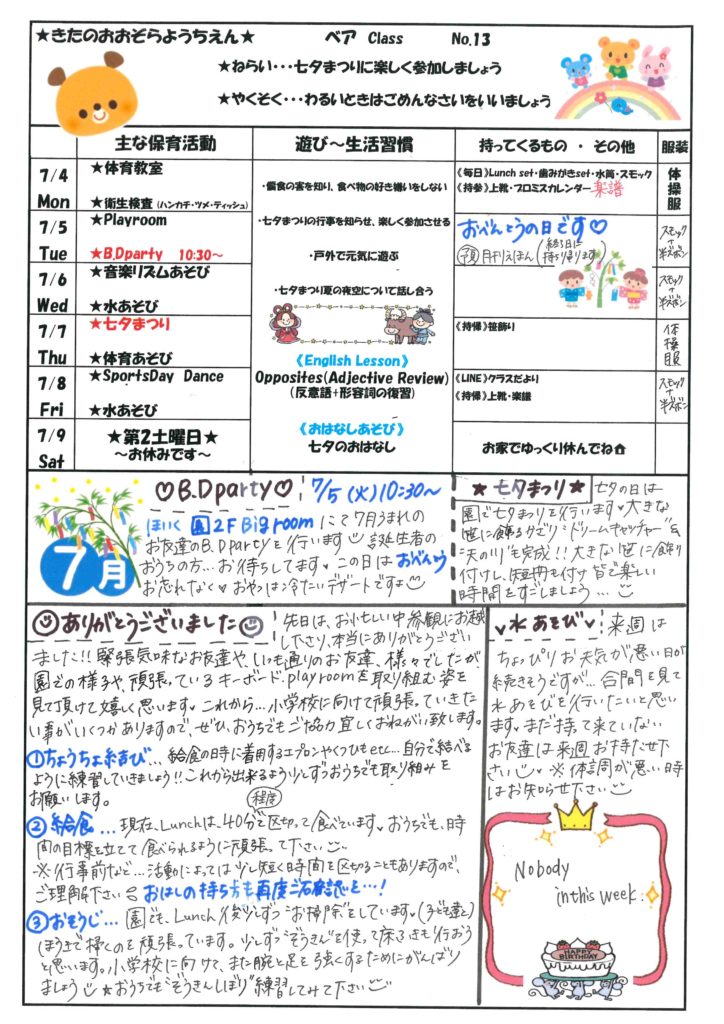 ★きたのおおぞらようちえん★ ベア Class No.13
★ねらい・・・七夕まつりに楽しく参加しましょう
★やくそく・・・わるいときはごめんなさいをいいましょう
主な保育活動 遊び～生活習慣 持ってくるもの ・ その他 服装
7/4 Mon
★体育教室
★衛生検査 (ハンカチ・ツメ・ティッシュ)
《毎日》Lunch set・歯みがきset・水筒・スモック
《持参》上靴・プロミスカレンダー 楽譜
体操服
7/5 Tue
★Playroom
★B.Dparty 10:30～
おべんとうの日です♡
スモック+半ズボン
7/6 Wed
★音楽リズムあそび
★水あそび
スモック+半ズボン
7/7 Thu
★七夕まつり
★体育あそび
《持帰》笹飾り
体操服
7/8 Fri
★SportsDay Dance
★水あそび
《LINE》クラスだより
《持帰》上靴・楽譜
スモック+半ズボン
7/9 Sat
★第2土曜日★
～お休みです～
お家でゆっくり休んでね
・偏食の害を知り、食べ物の好き嫌いをしない
・七夕まつりの行事を知らせ、楽しく参加させる
・戸外で元気に遊ぶ
・七夕まつり夏の夜空について話し合う
《English Lesson》
Opposites(Adjective Review)
(反意語+形容詞の復習)
《おはなしあそび》
七夕のおはなし
7月
♡B.Dparty♡ 7/5(火)10:30～
ほいく園2F Big roomにて7月うまれの
お友達のB.Dpartyを行います 誕生者の
おうちの方...お待ちしてます♥この日はおべんとう
お忘れなく♥おやつは冷たいデザートですよ
★七夕まつり★ 七夕の日は
園で七夕まつりを行います♥大きな
笹に飾るかざり"ドリームキャッチャー"&
"天の川"を完成!!大きな笹に飾り
付けし、短冊も付け皆で楽しい
時間をすごしましょう...
ありがとうございました 先日は、お忙しい中参観にお越
し下さり、本当にありがとうござい
ました!!緊張気味なお友達や、いつも通りのお友達、様々でしたが
園での様子や、頑張っているキーボード・playroomを取り組む姿を
見て頂けて嬉しく思います♥これから...小学校に向けて頑張っていきた
い事がいくつかありますので、ぜひ、おうちでもご協力宜しくおねがい致します。
①ちょうちょ結び... 給食の時に着用するエプロンやくつひもetc...自分で結べる
ように練習していきましょう!!これから出来るよう少しずつおうちでも取り組みを
お願いします。
②給食... 現在、Lunchは、40分程度で区切って食べています♥おうちでも、時
間の目標を立てて食べられるように頑張って下さい
※行事前など...活動によっては少し短く時間を区切ることもありますので、
ご理解下さい おはしの持ち方も再度ご確認を...!
③おそうじ... 園でも、Lunch後少しずつ"お掃除"をしています♥(子ども達と)
ほうきで掃くのを頑張っています。少しずつ"ぞうきん"を使って床ふきも行おう
と思います。小学校に向けて、また腕と足を強くするためにがんばり
ましょう ★おうちでも"ぞうきんしぼり"練習してみて下さい
♥水あそび♥ 来週は
ちょっぴりお天気が悪い日が
続きそうですが...合間を見て
水あそびを行いたいと思い
ます♥まだ持って来ていない
お友達は来週お持た下
さい ※体調が悪い時
はお知らせ下さい
Nobody
in this week.
HAPPY BIRTHDAY